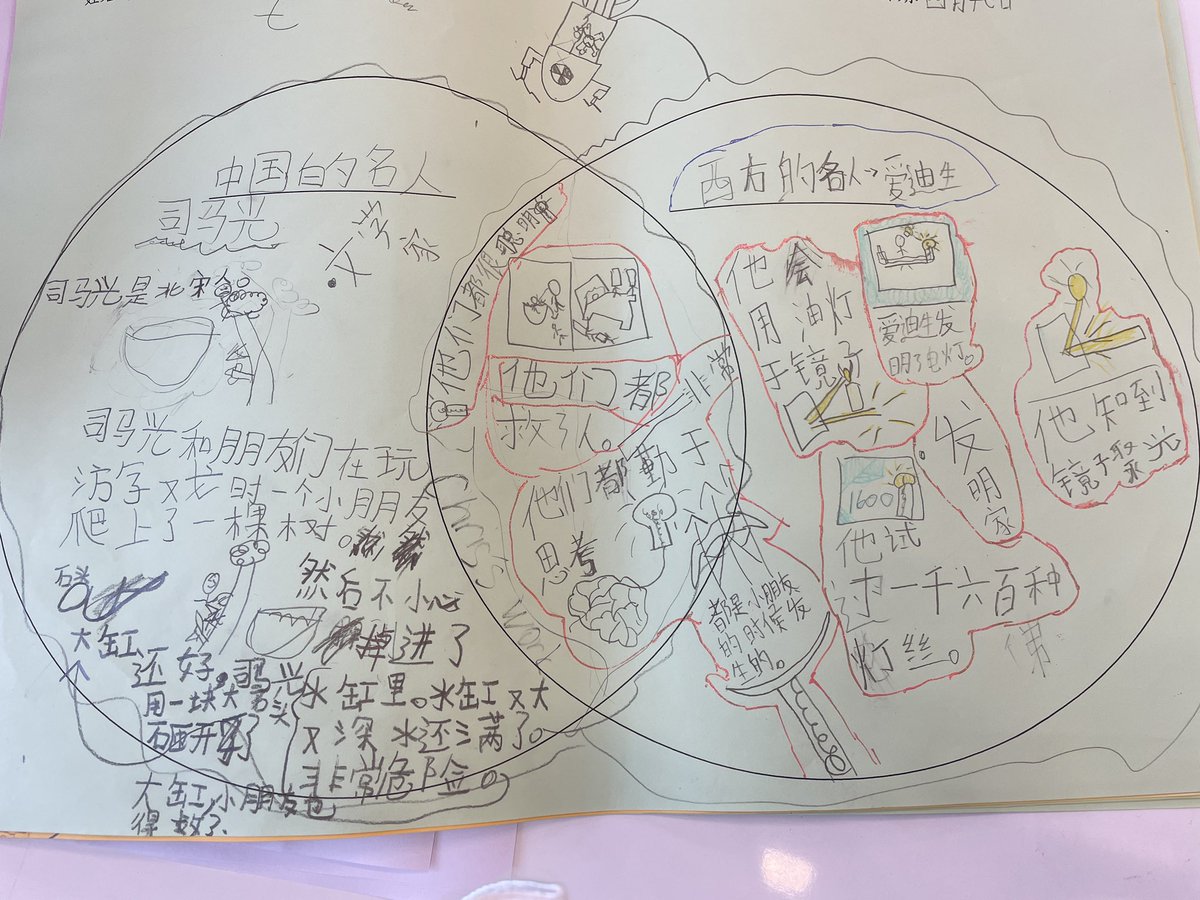 七
中国的名人
司马光
文学家
司马光是北宋人
司马光和朋友们在玩
时一个小朋友
爬上了一棵树。
然后不小心
掉进了
水缸里。水缸又大
又深水还满了。
非常危险。
大缸
还好。司马光
用一块大石头
石画开了
大缸,小朋友也
得救了。
他们都很聪明
他们都
救了人。
他们都非常
勤于
思考
Chris's work
都是小朋友
的时候发
生的。
西方的名人→爱迪生
他会
用油灯
于镜子
爱迪生发
明了电灯。
发明家
1600
他试
过一千六百种
灯丝。
他知到
镜子聚光